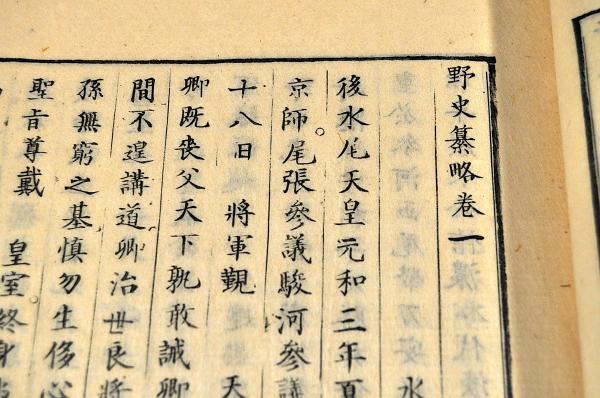 野史纂略卷一
水
後水尾天皇元和三年
京師尾張參議駿河參議
十八日 將軍覲 天
卿既喪父天下孰敢誡卿
間不遑講道卿治世良將
孫無窮之基慎勿生侈心
聖旨尊戴 皇室終身